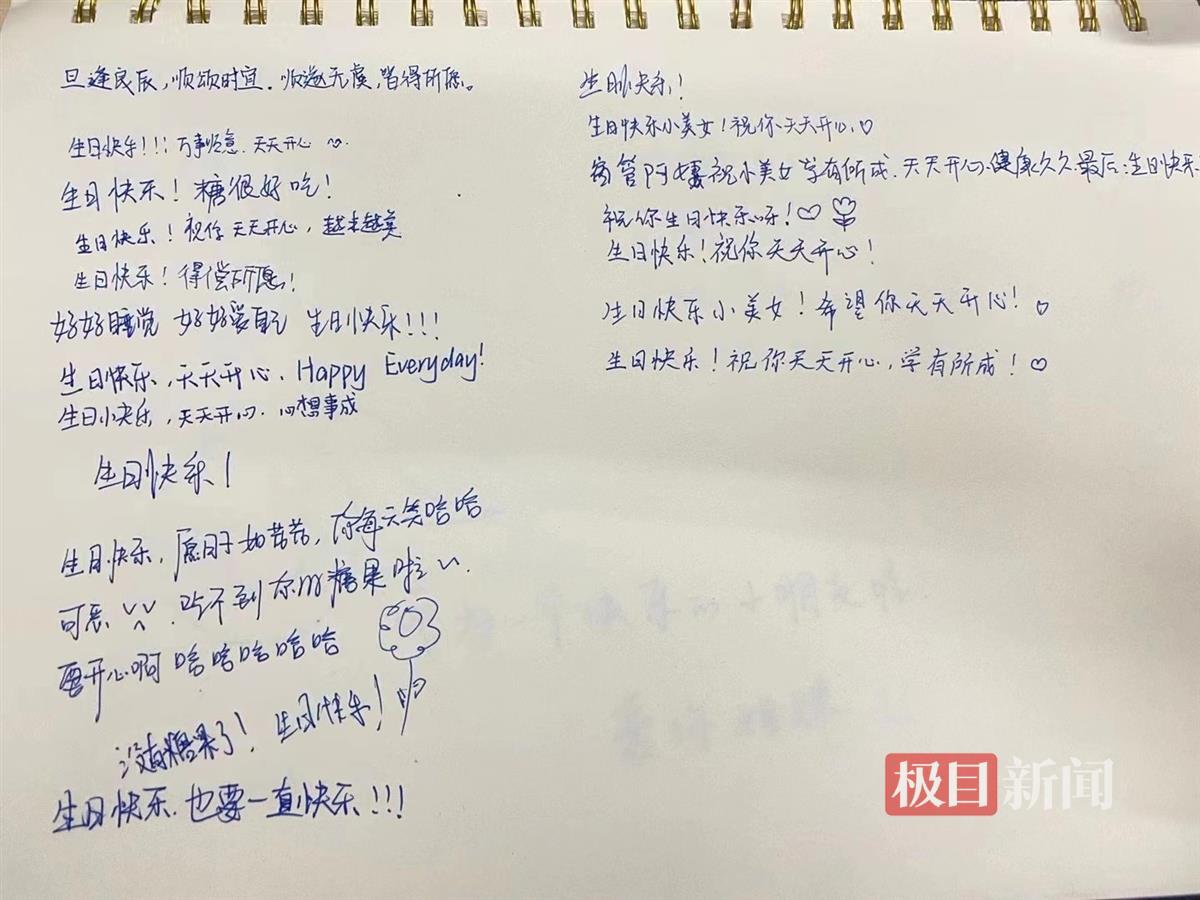 旦逢良辰，顺颂时宜．顺遂无虞，皆得所愿。
生日快乐!!! 万事顺意．天天开心
生日快乐！糖很好吃！
生日快乐！祝你天天开心，越来越美
生日快乐！得偿所愿！
好好睡觉 好好爱自己 生日快乐!!!
生日快乐，天天开心．Happy Everyday!
生日快乐，天天开心．心想事成
生日快乐！
生日快乐，愿日子如苦苦，你每天笑哈哈
可恶 吃不到你的糖果啦
要开心啊 哈哈哈哈哈
没有糖果了！生日快乐！
生日快乐．也要一直快乐!!!
生日快乐！
生日快乐小美女！祝你天天开心♡
宿管阿姨祝小美女学有所成．天天开心．健康久久．最后：生日快乐
祝你生日快乐呀！♡
生日快乐！祝你天天开心！
生日快乐小美女！希望你天天开心！♡
生日快乐！祝你天天开心，学有所成！♡
极目新闻